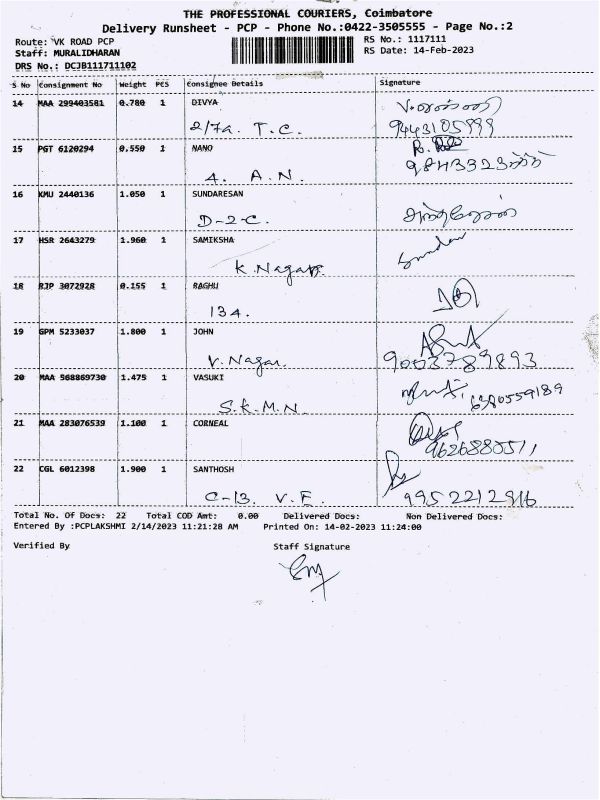 THE PROFESSIONAL COURIERS, Coimbatore
Delivery Runsheet - PCP - Phone No.:0422-3505555 - Page No.:2
Route: VK ROAD PCP
RS No.: 1117111
Staff: MURALIDHARAN
RS Date: 14-Feb-2023
DRS No.: DCJB111711102
S No Consignment No Weight PCS Consignee Details Signature
14 MAA 299403581 0.780 1 DIVYA
2/7a. T.C. 9443105999
15 PGT 6120294 0.550 1 NANO
4. A.N.
16 KMU 2440136 1.050 1 SUNDARESAN
D-2-C.
17 HSR 2643279 1.960 1 SAMIKSHA
K.Nagar
18 BJP 3072928 0.155 1 RAGHU
134.
19 GPM 5233037 1.800 1 JOHN
V.Nagar. 9003789893
20 MAA 568869730 1.475 1 VASUKI
S.K.M.N. 6380559189
21 MAA 283076539 1.100 1 CORNEAL
9626880511
22 CGL 6012398 1.900 1 SANTHOSH
C-13. V.E. 9952212916
Total No. Of Docs: 22 Total COD Amt: 0.00 Delivered Docs: Non Delivered Docs:
Entered By :PCPLAKSHMI 2/14/2023 11:21:28 AM Printed On: 14-02-2023 11:24:00
Verified By Staff Signature